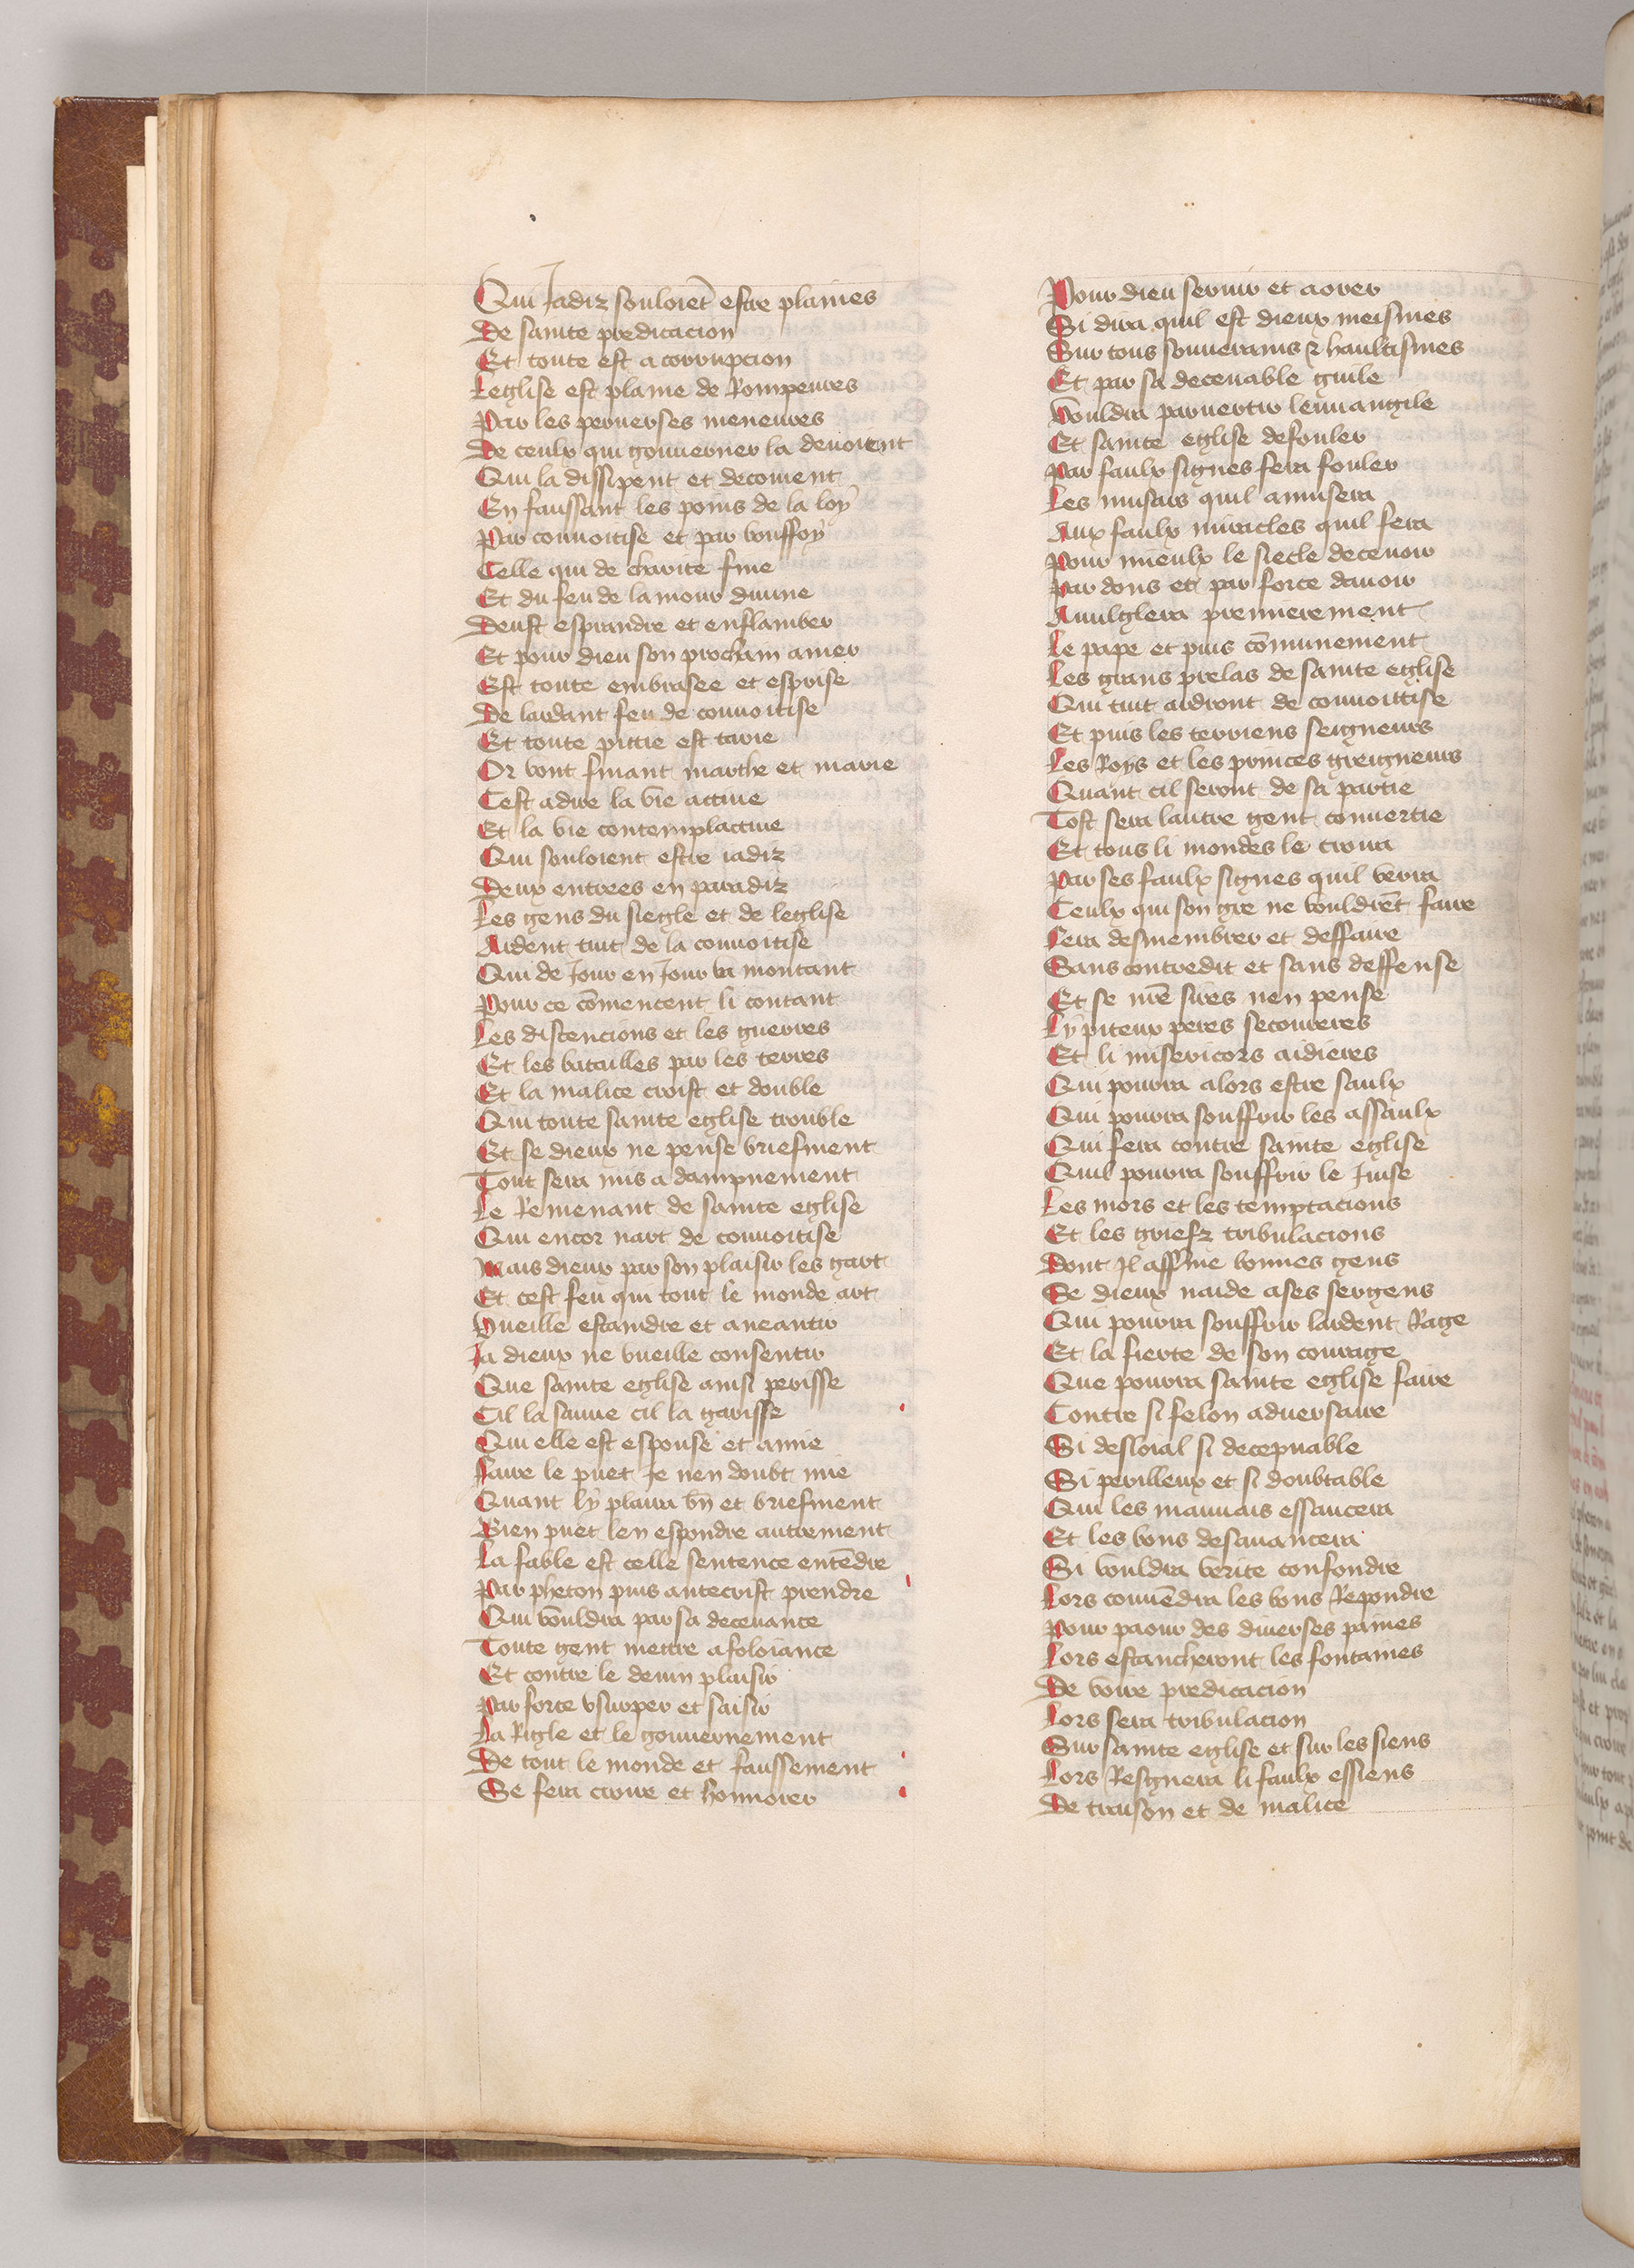 Qui Jadiz souloiēt estre plaines
De sainte predicacion
Et toute est a corrupcion
Leglise est plaine de Rompeures
Par les peruerses meneures
De ceulx qui gouuerner la deuoient
Qui la dissipent et decoiuent
En faussant les poins de la loy
Par couuoitise et par bouffoy
Celle qui de charite fine
Et du feu de lamour diuine
Deust esprandre et enflamber
Et pour dieu son procham amer
Est toute embrasee et esprise
De lardant feu de couuoitise
Et toute pitie est tarie
Or vont finant marthe et marie
Cest adire la vie actiue
Et la vie contemplatiue
Qui souloient estre iadiz
Deux entrees en paradiz
Les gens du siegle et de leglise
Ardent tuit de la couuoitise
Qui de Jour en Jour va montant
Pour ce cōmencent li contant
Les discencions et les guerres
Et les batailles par les terres
Et la malice croist et double
Qui toute sainte eglise trouble
Et se dieux ne pense briefment
Tout sera mis a dampnement
Le Remenant de sainte eglise
Qui encor nart de couuoitise
Mais dieux par son plaisir les gart
Et cest feu qui tout le monde art
Vueille estaindre et aneantir
Ja dieux ne vueille consentir
Que sainte eglise ainsi perisse
Cil la sauue cil la garisse
Qui elle est espouse et amie
Faire le puet Je nen doubt mie
Quant ly plaira bn̄ et briefment
Bien puet len espondre autrement
La fable est celle sentence entēdre
Par pheton puis antecrist prendre
Qui vouldra par sa deceuance
Toute gent mettre a foloiance
Et contre le deuin plaisir
Par force vsurper et saisir
La Rigle et le gouuernement
De tout le monde et faussement
Se fera croire et honnorer
Pour dieu seruir et aorer
Si dira quil est dieux meismes
Sur tous souuerains & haultismes
Et par sa deceuable guile
Vouldra paruertir leuuangile
Et sainte eglise defouler
Par faulx signes fera fouler
Les musars quil amusera
Aux faulx miracles quil fera
Pour mieulx le siecle deceuoir
Par dons et par force dauoir
Auulglera premierement
Le pape et puis cōmunement
Les grans prelas de sainte eglise
Qui tuit ardront de couuoittise
Et puis les terriens seigneurs
Les Roys et les princes greigneurs
Quant cil seront de sa partie
Tost sera lautre gent conuertie
Et tous li mondes le croira
Par ses faulx signes quil verra
Ceulx qui son gre ne vouldrēt faire
Fera desmembrer et deffaire
Sans contredit et sans deffense
Et se nr̄e sires nen pense
Ly piteux peres secoureres
Et li misericors aidieres
Qui pourra alors estre saulx
Qui pourra souffrir les assaulx
Qui fera contre sainte eglise
Quil pourra souffrir le Juise
Les mors et les temptacions
Et les griefz tribulacions
Dont Jl affine bonnes gens
Se dieux naide ases sergens
Qui pourra souffrir lardent Rage
Et la fierte de son courage
Que pourra sainte eglise faire
Contre si felon aduersaire
Si desloial si decepuable
Si perilleux et si doubtable
Qui les mauuais essaucera
Et les bons desauancera
Si vouldra verite confondre
Lors conuēdra les bons Repondre
Pour paour des diuerses paines
Lors estancheront les fontaines
De voire predicacion
Lors sera tribulacion
Sur sainte eglise et sur les siens
Lors Resgnera li faulx essiens
De traison et de malice